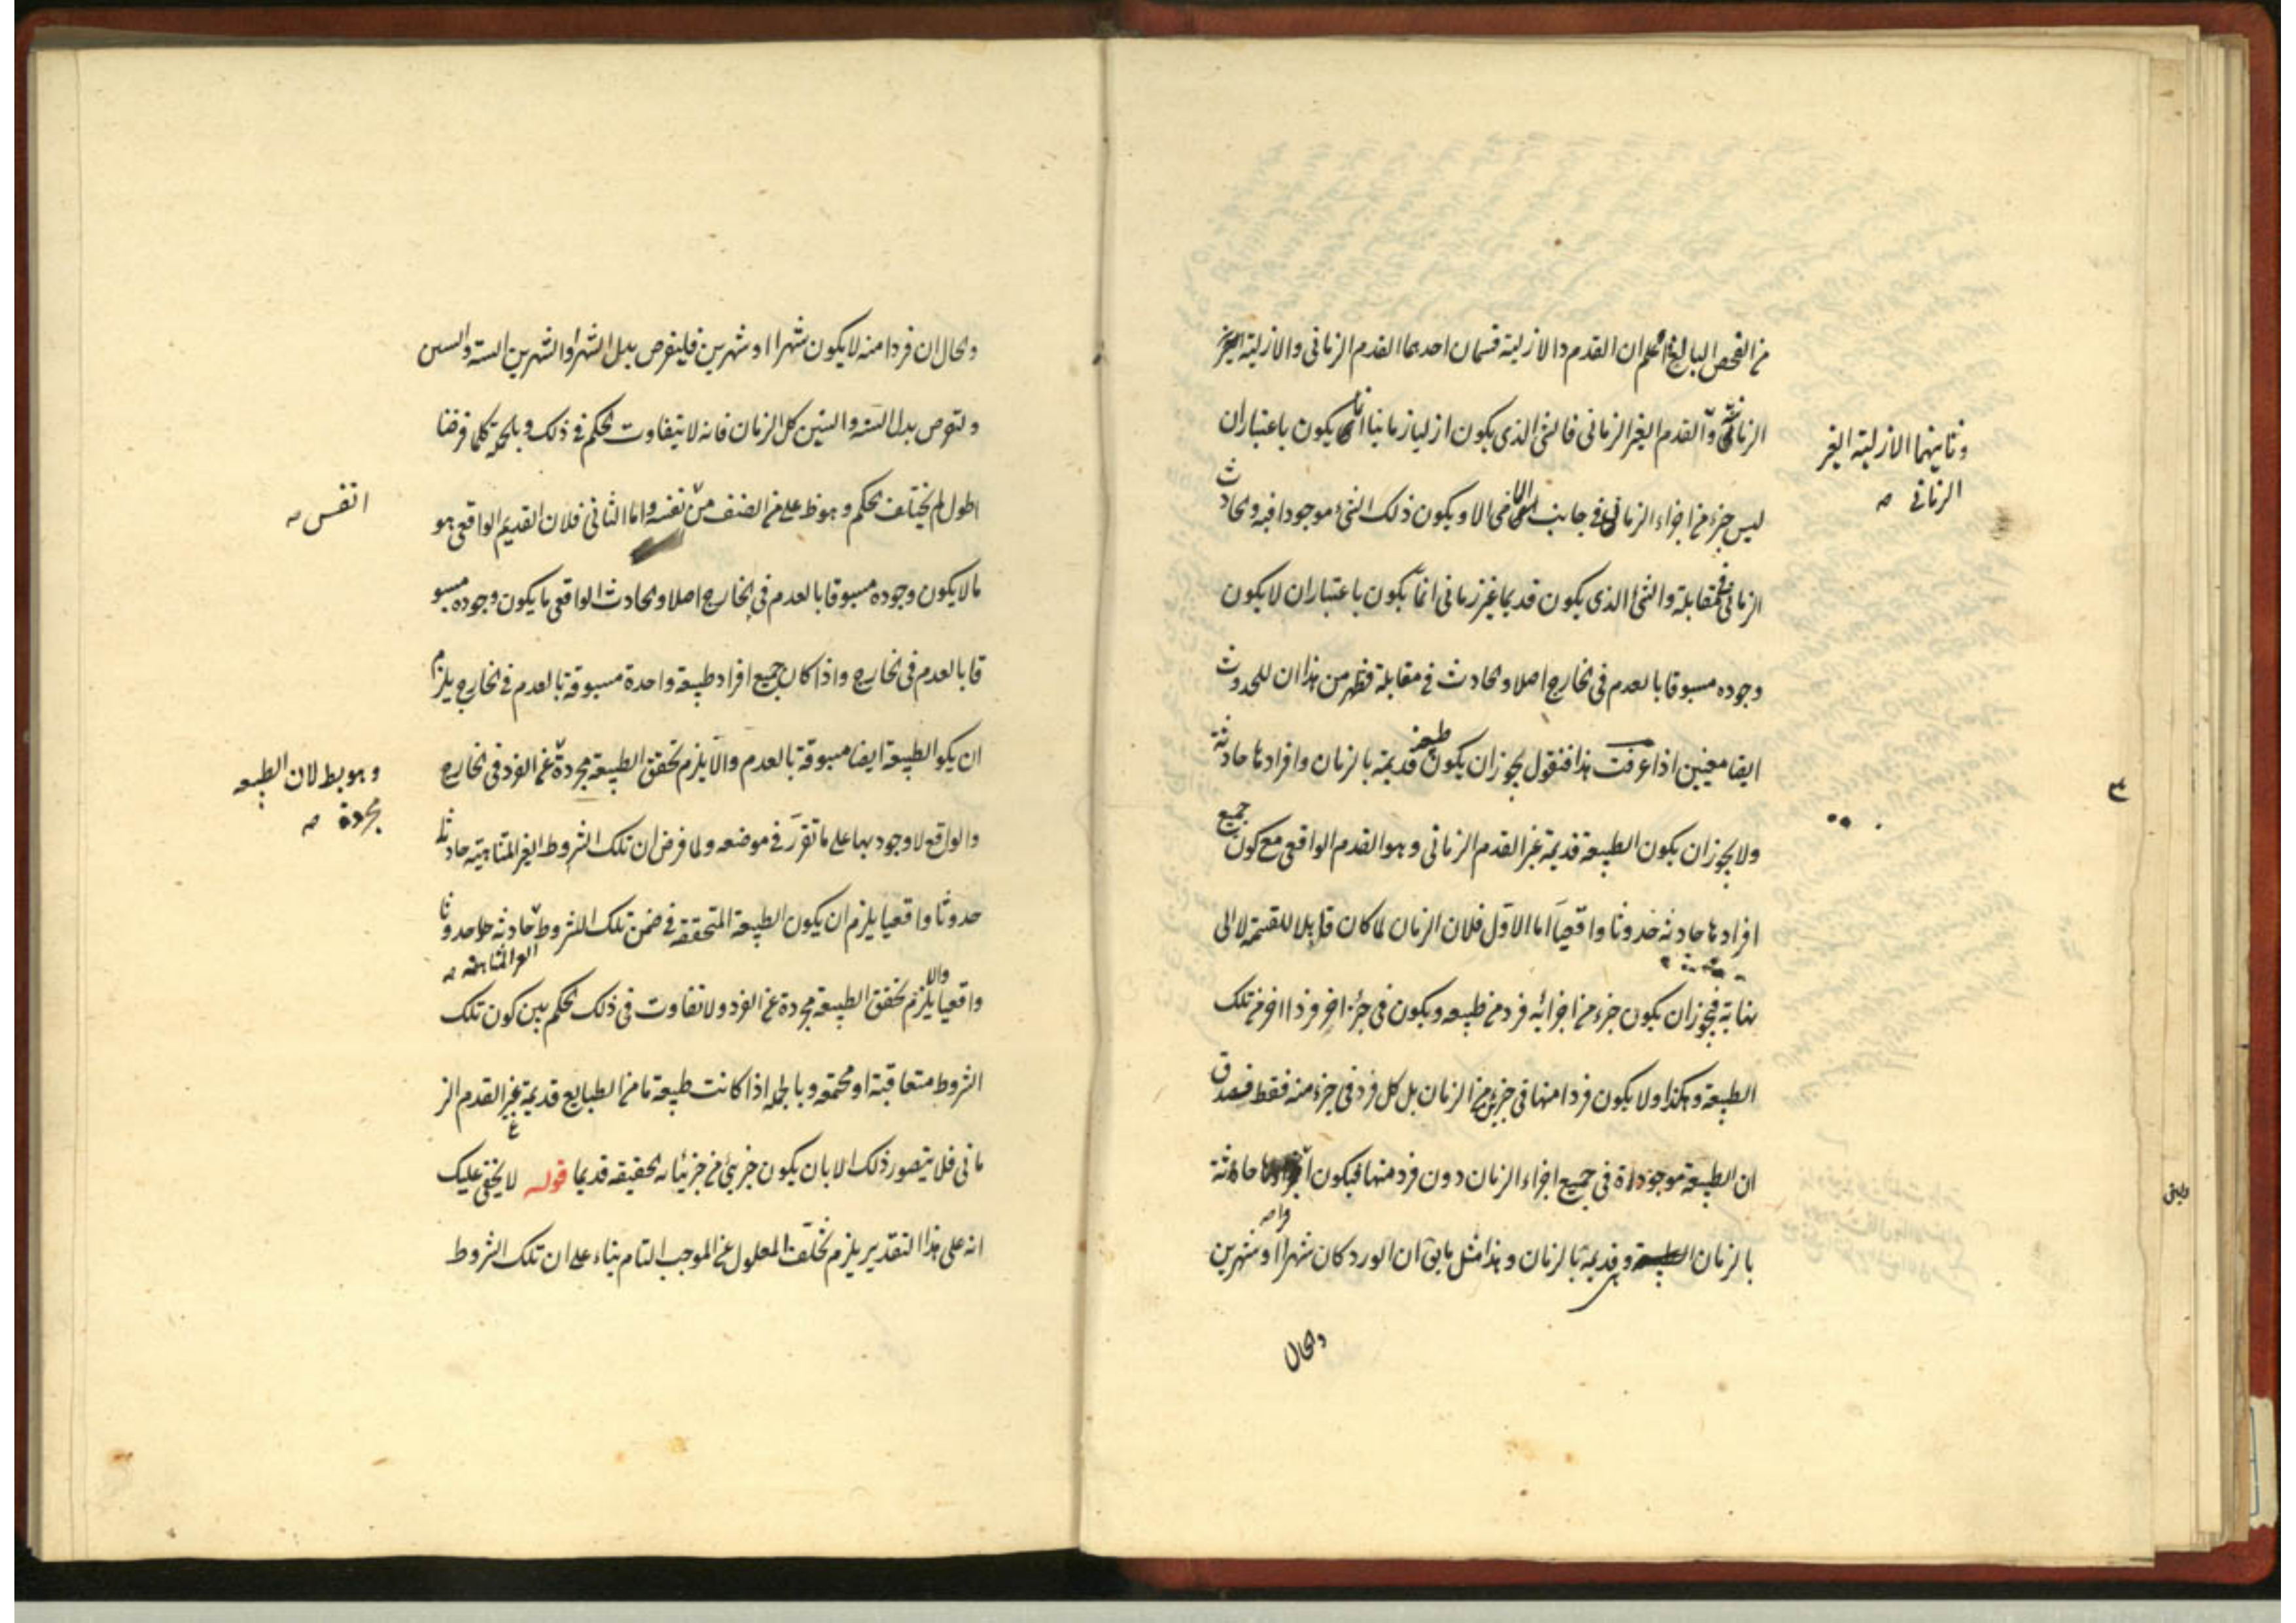 من الفحص البالغ اعلم ان القدم والازلية قسمان احدهما القدم الزمانى والازلية
الزمانية والقدم الغير الزمانى فالشئ الذى يكون ازليا زمانيا انما يكون باعتبار ان
وثانيهما الازلية الغير
الزمانى صه
ليس جزء من اجزاء الزمان فى جانب الماضى الا ويكون ذلك الشئ موجودا فيه والحادث
الزمانى فى مقابلة والشئ الذى يكون قديما غير زمانى انما يكون باعتبار ان لا يكون
وجوده مسبوقا بالعدم فى الخارج اصلا والحادث فى مقابلة فظهر من هذا ان للحدوث
ايضا معنيين اذا عرفت هذا فنقول يجوز ان يكون طبيعة قديمة بالزمان وافرادها حادثة
ولا يجوز ان يكون الطبيعة قديمة غير القدم الزمانى وهو القدم الواقعى مع كون جميع
افرادها حادثة حدوثا واقعيا اما الاول فلان الزمان لما كان قابلا للقسمة لا الى
نهاية فيجوز ان يكون جزء من اجزائه فرد من طبيعه ويكون فى جزء اخر فردا اخر من تلك
الطبيعة وهكذا ولا يكون فردا منها فى جزئين من الزمان بل كل فرد فى جزء منه فقط فيصدق
ان الطبيعة موجودة فى جميع اجزاء الزمان دون فرد منها فيكون افرادها حادثة
بالزمان وهى قديمة بالزمان وهذا مثل ما يق ان الورد كان شهرا او شهرين
والحال
والحال ان فردا منه لا يكون شهرا او شهرين فليفرض بدل الشهر والشهرين السنة والسنين
وليفرض بدل السنة والسنين كل الزمان فانه لا يتفاوت الحكم فى ذلك وبالجملة كلما فرضنا
اطول لم يختلف الحكم وهو ظ على من انصف من نفسه واما الثانى فلان القديم الواقعى هو
انفس صه
ما لا يكون وجوده مسبوقا بالعدم فى الخارج اصلا والحادث الواقعى ما يكون وجوده مسبو
قا بالعدم فى الخارج واذا كان جميع افراد طبيعة واحدة مسبوقة بالعدم فى الخارج يلزم
ان يكو الطبيعة ايضا مسبوقة بالعدم والا يلزم تحقق الطبيعة مجردة عن الفرد فى الخارج
وهو بط لان الطبيعه
مجردة صه
والواقع لا وجود لها على ما تقرر فى موضعه ولما فرض ان تلك الشروط الغير المتناهية حادثة
حدوثا واقعيا يلزم ان يكون الطبيعة المتحققه فى ضمن تلك الشروط حادثة حدوثا
الغير المتناهية صه
واقعيا والا يلزم تحقق الطبيعة مجردة عن الفرد ولا تفاوت فى ذلك الحكم بين كون تلك
الشروط متعاقبة او مجتمعه وبالجمله اذا كانت طبيعة ما من الطبايع قديمة بغير القدم الز
مانى فلا يتصور ذلك الا بان يكون جزئى من جزئياته الحقيقه قديما قوله لا يخفى عليك
انه على هذا التقدير يلزم تخلف المعلول عن الموجب التام بناء على ان تلك الشروط